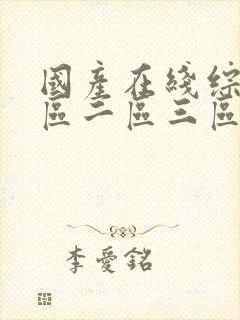 國產在綫綜
區二區三區
李愛銘